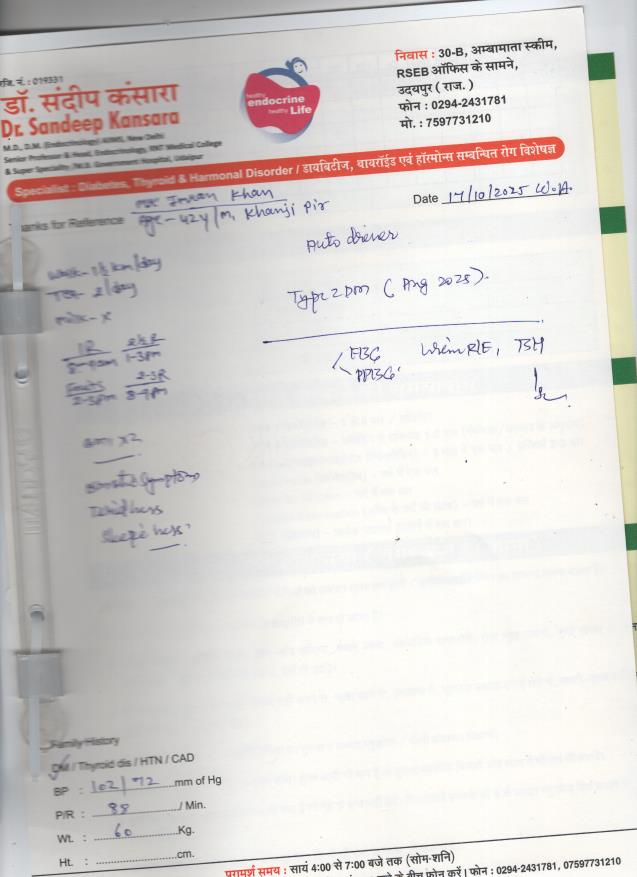 रजि. नं. : 019331
डॉ. संदीप कंसारा
Dr. Sandeep Kansara
M.D., D.M. (Endocrinology) AIIMS, New Delhi
Senior Professor & Head, Endocrinology, RNT Medical College
& Super Speciality, M.B. Government Hospital, Udaipur
healthy
endocrine
healthy
Life
निवास : 30-B, अम्बामाता स्कीम,
RSEB ऑफिस के सामने,
उदयपुर ( राज. )
फोन : 0294-2431781
मो. : 7597731210
Specialist : Diabetes, Thyroid & Harmonal Disorder / डायबिटीज, थायरॉईड एवं हॉरमोन्स सम्बन्धित रोग विशेषज्ञ
Thanks for Reference Imran Khan
Age - 42y/m, Khanji Pir
Date 17/10/2025
Auto driver
Walk - 1½ km/day
Tea - 2/day
milk - x
Type 2 DM ( Aug 2025).
1R
8-9am 1-3pm
Fruits 2-3R
2-3pm 8-9pm
FBG
PPBG
Urine R/E, TSH
x2
Symptom
Tiredness
Family History
DM / Thyroid dis / HTN / CAD
BP : 102/72 mm of Hg
P/R : 88 / Min.
Wt. : 60 Kg.
Ht. : cm.
परामर्श समय : सायं 4:00 से 7:00 बजे तक (सोम-शनि)
के बीच फोन करें | फोन : 0294-2431781, 07597731210